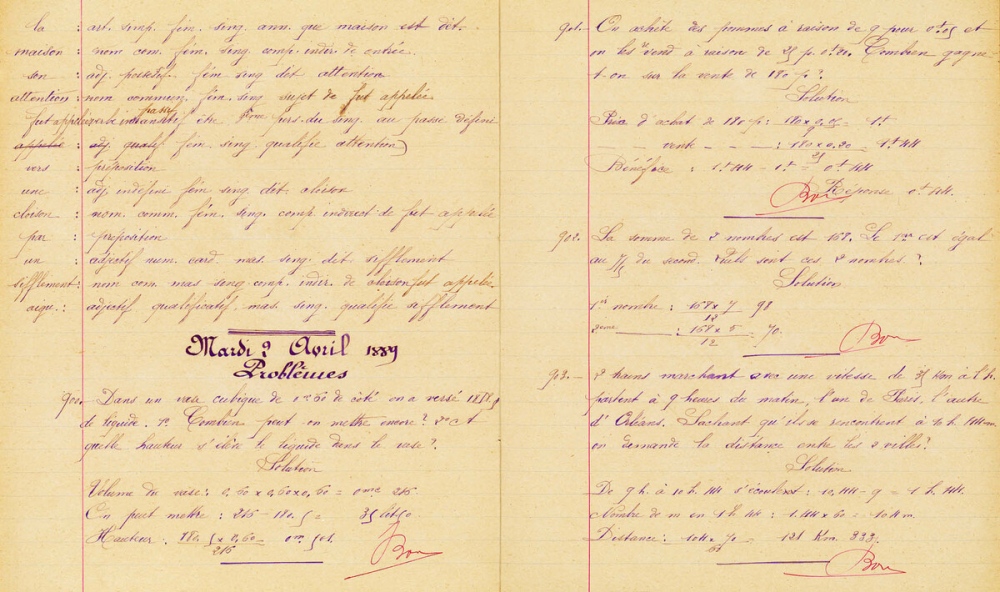 la : art. simp. fém. sing. ann. que maison est dét.
maison : nom com. fém. sing. comp. indir. de entrée
son : adj. possessif. fém. sing. dét. attention
attention : nom commun. fém. sing. sujet de fut appelée
fut appelée verbe transitif passif être 3ème pers. du sing. au passé défini
appelée : adj. qualif. fém. sing. qualifie attention)
vers : préposition
une : adj. indéfini fém. sing. dét. cloison
cloison : nom. comm. fém. sing. comp. indirect de fut appelée
par : préposition
un : adjectif num. card. mas. sing. dét. sifflement
sifflement : nom com. mas. sing. comp. indir. de fut appelée
aigu. : adjectif qualificatif mas. sing. qualifie sifflement
Mardi 2 Avril 1889
Problèmes
900. Dans un vase cubique de 0m60 de côté on a versé
de liquide. 1º Combien peut-on mettre encore? 2º et
quelle hauteur s'élève le liquide dans le vase?
Solution
Volume du vase : 0,60 x 0,60 x 0,60 = 0mc 216.
On peut mettre : 216 - 180,5 = 35 lit 50
Hauteur : 180,5 x 0,60 = 0m 501.
216
Bon
901. On achète des pommes à raison de 9 pour 0f05 et
on les vend à raison de 25 p. 0f20. Combien gagne-
t-on sur la vente de 180 p?
Solution
Prix d'achat de 180 p : 180 x 0,05 = 1f
9
— — vente — : 180 x 0,20 = 1f44
25
Bénéfice : 1f44 - 1f = 0f44
Réponse 0f44.
Bon
902. La somme de 2 nombres est 168. Le 1er est égal
au 7/5 du second. Quels sont ces 2 nombres?
Solution
1er nombre : 168 x 7 98
12
2ème : 168 x 5 = 70.
12
Bon
903. — 2 trains marchant avec une vitesse de 35 Km à l'h.
partent à 9 heures du matin, l'un de Paris, l'autre
d'Orléans. Sachant qu'ils se rencontrent à 10 h 44m
on demande la distance entre les 2 villes?
Solution
De 9 h. à 10 h. 44 s'écoulent : 10,44 - 9 = 1 h. 44.
Nombre de m en 1h 44 : 1.44 x 60 = 104 m.
Distance : 104 x 70 = 121 Km. 333.
60
Bon